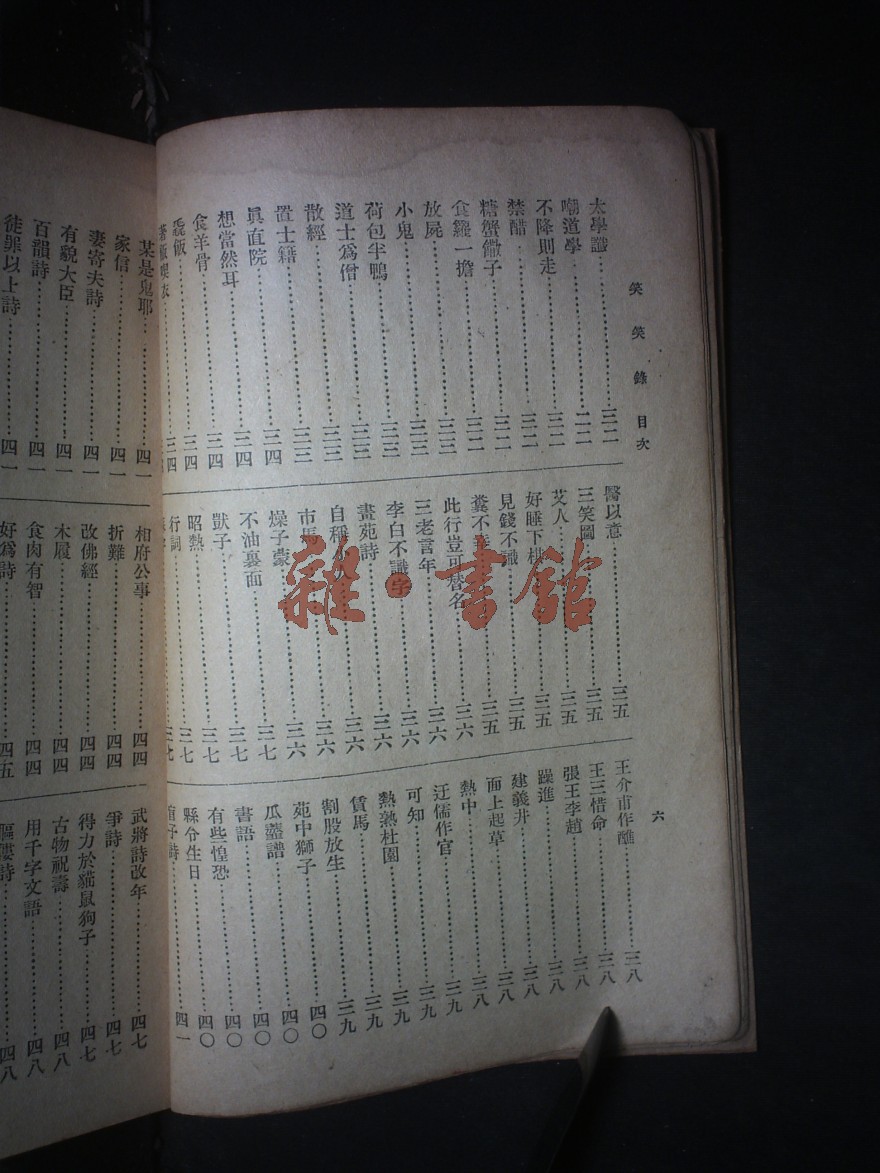 笑笑錄 目次
六
太學讖……三二
嘲道學……三二
不降則走……三二
禁醋……三二
糖蟹饊子……三二
食雞一擔……三二
放屍……三三
小鬼……三三
荷包半鴨……三三
道士爲僧……三三
散經……三三
置士籍……三四
眞直院……三四
想當然耳……三四
食羊骨……三四
毳飯……三四
醫以意……三五
三笑圖……三五
艾人……三五
好睡下棋……三五
見錢不識……三五
糞不
此行豈可替名……三六
三老言年……三六
李白不識字……三六
畫苑詩……三六
自稱
市馬
燥子蒙……三六
不油裏面……三七
獃子……三七
昭熱……三七
行詞……三七
王介甫作醮……三八
王三惜命……三八
張王李趙……三八
躁進……三八
建義井……三八
面上起草……三八
熱中……三九
迂儒作官……三九
可知……三九
熱熟杜園……三九
賃馬……三九
割股放生……四〇
苑中獅子……四〇
瓜虀譜……四〇
書語……四〇
有些惶恐……四〇
縣令生日……四〇
某是鬼耶……四一
家信……四一
妻寄夫詩……四一
有貌大臣……四一
百韻詩……四一
徒罪以上詩……四一
相府公事……四四
折難……四四
改佛經……四四
木屐……四四
食肉有智……四四
好爲詩……四五
武將詩改年……四七
爭詩……四七
得力於貓鼠狗子……四七
古物祝壽……四八
用千字文語……四八
詩……四八
雜·書館